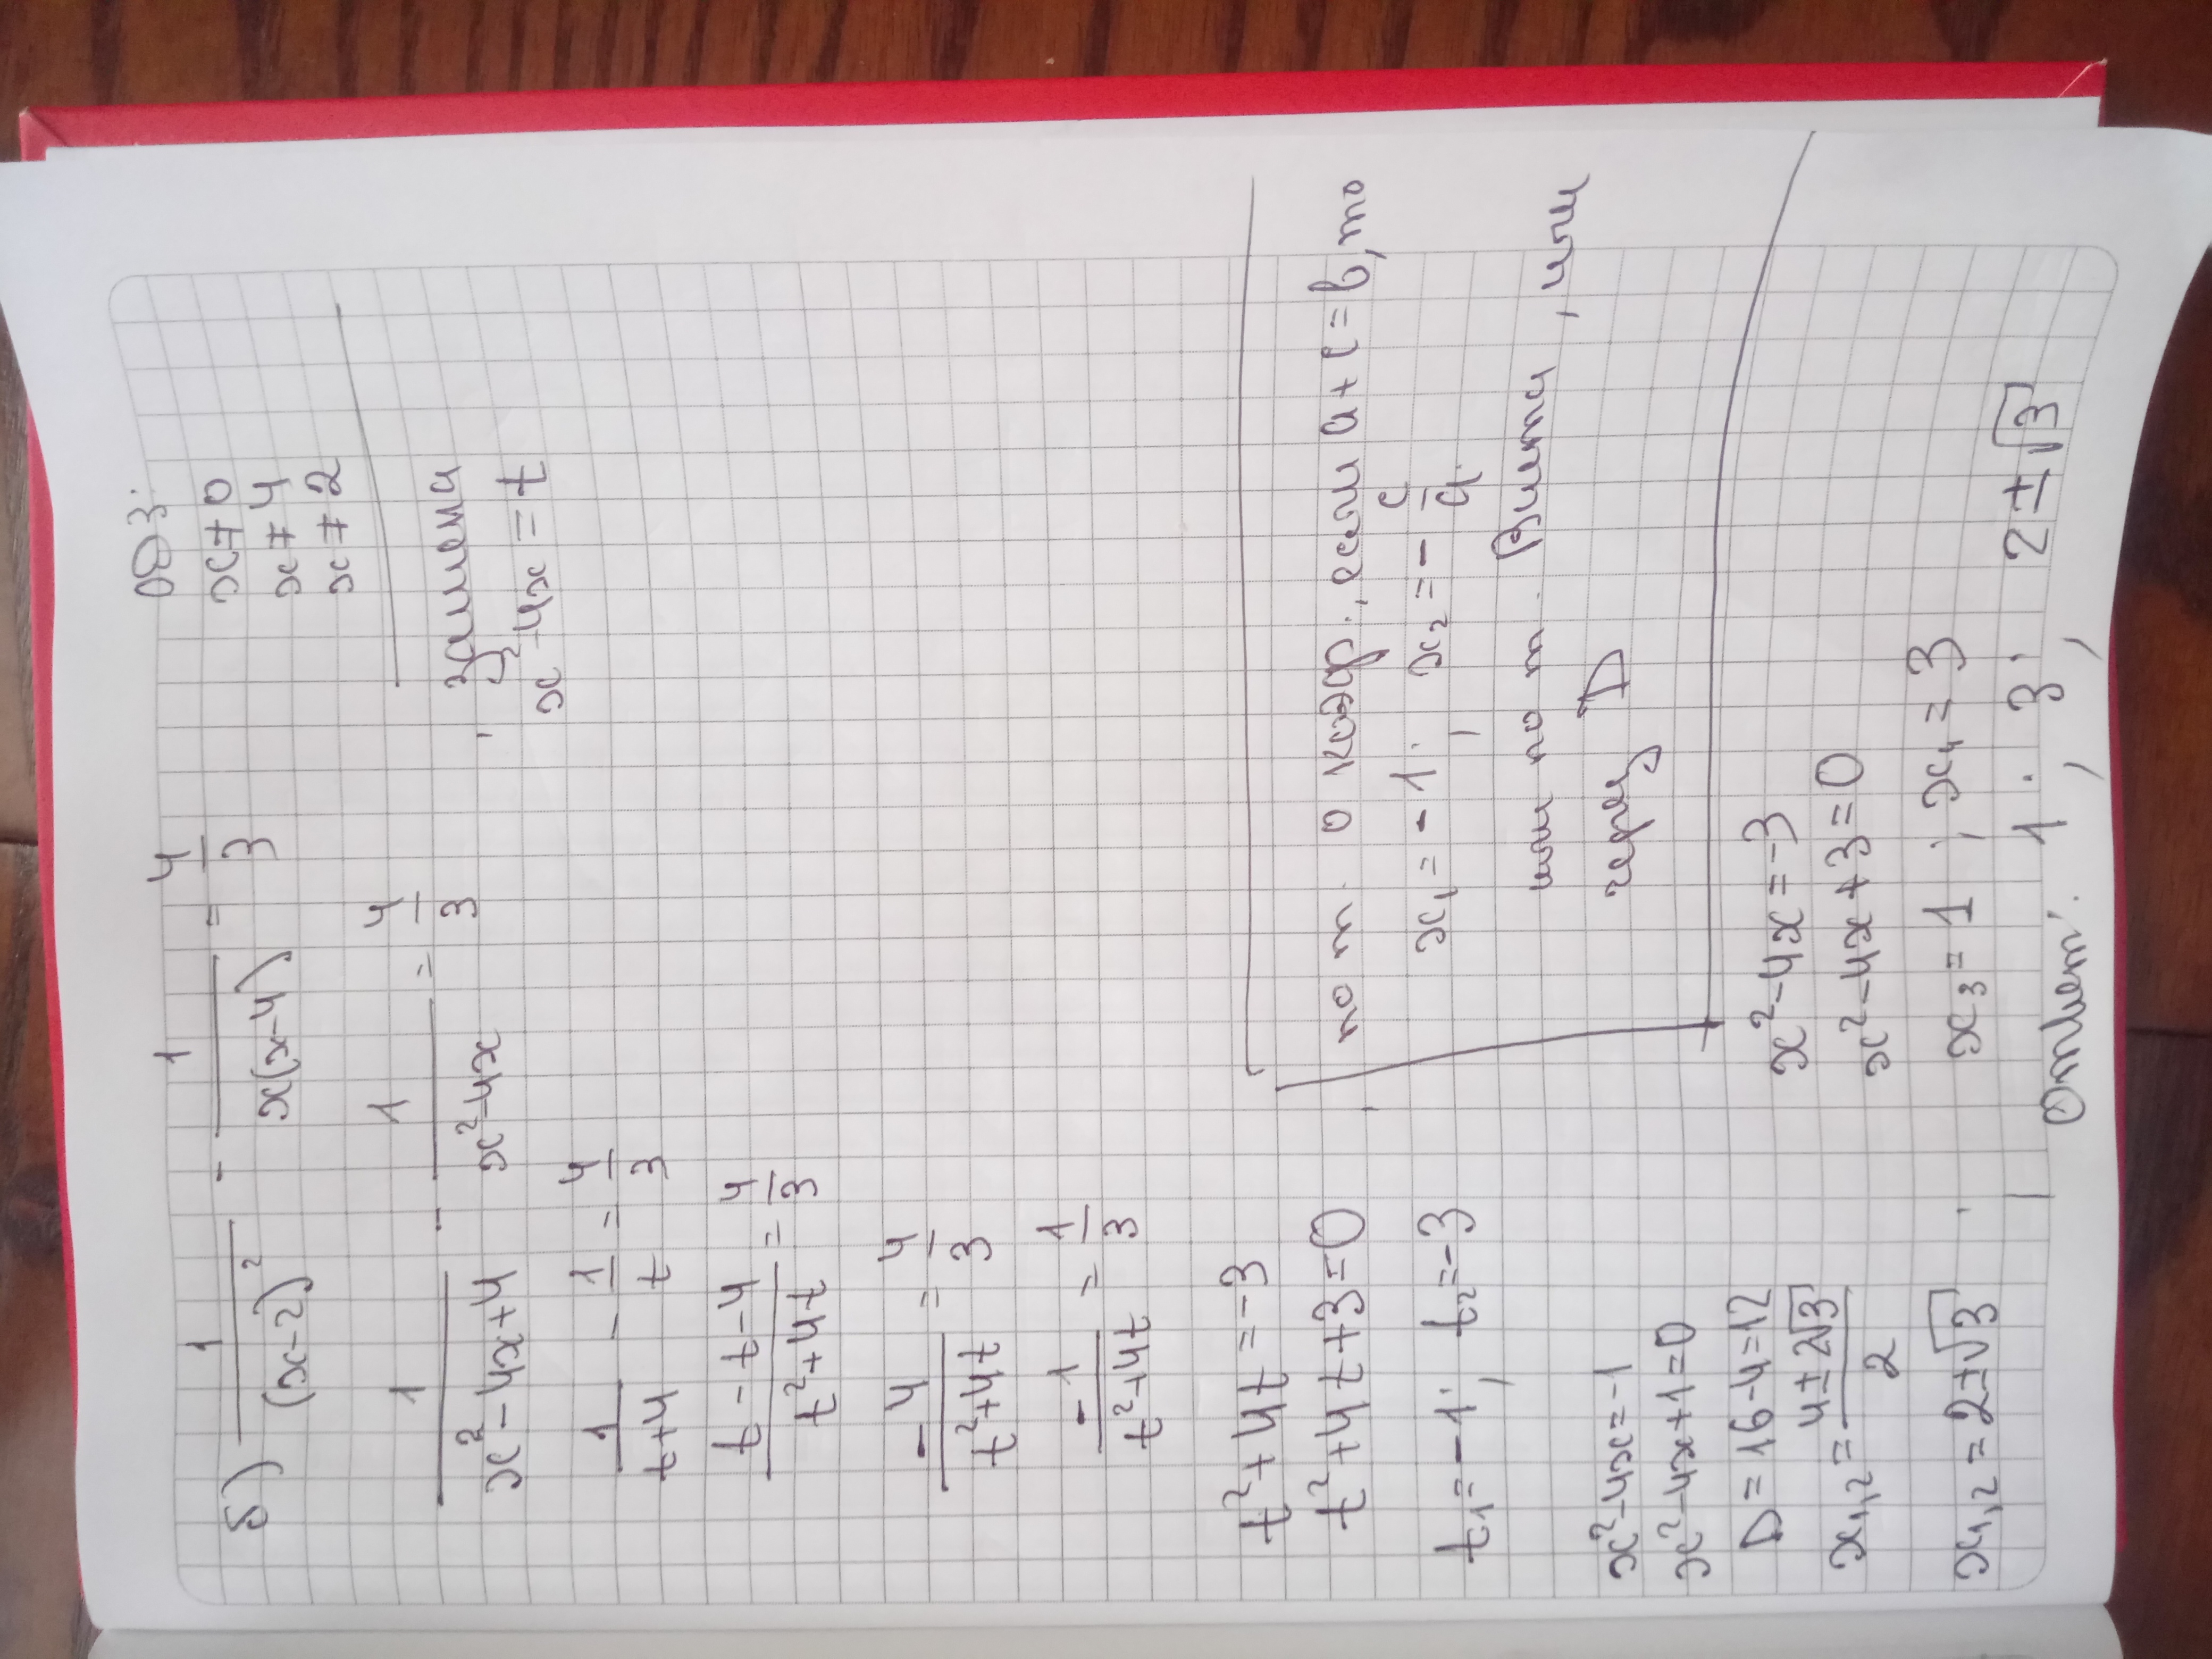 б) 1/(x-2)² - 1/(x(x-4)) = 4/3
ОДЗ:
x≠0
x≠4
x≠2
1/(x²-4x+4) - 1/(x²-4x) = 4/3,
замена
x²-4x=t
1/(t+4) - 1/t = 4/3
(t-t-4)/(t²+4t) = 4/3
-4/(t²+4t) = 4/3
-1/(t²+4t) = 1/3
t²+4t=-3
t²+4t+3=0,
t₁=-1; t₂=-3
по т. о коэф., если a+c=b, то
x₁=-1; x₂=-c/a
или по т. Виета, или
через D
x²-4x=-1
x²-4x+1=0
D=16-4=12
x₁,₂=(4±2√3)/2
x₁,₂=2±√3
x²-4x=-3
x²-4x+3=0
x₃=1; x₄=3
Ответ: 1; 3; 2±√3